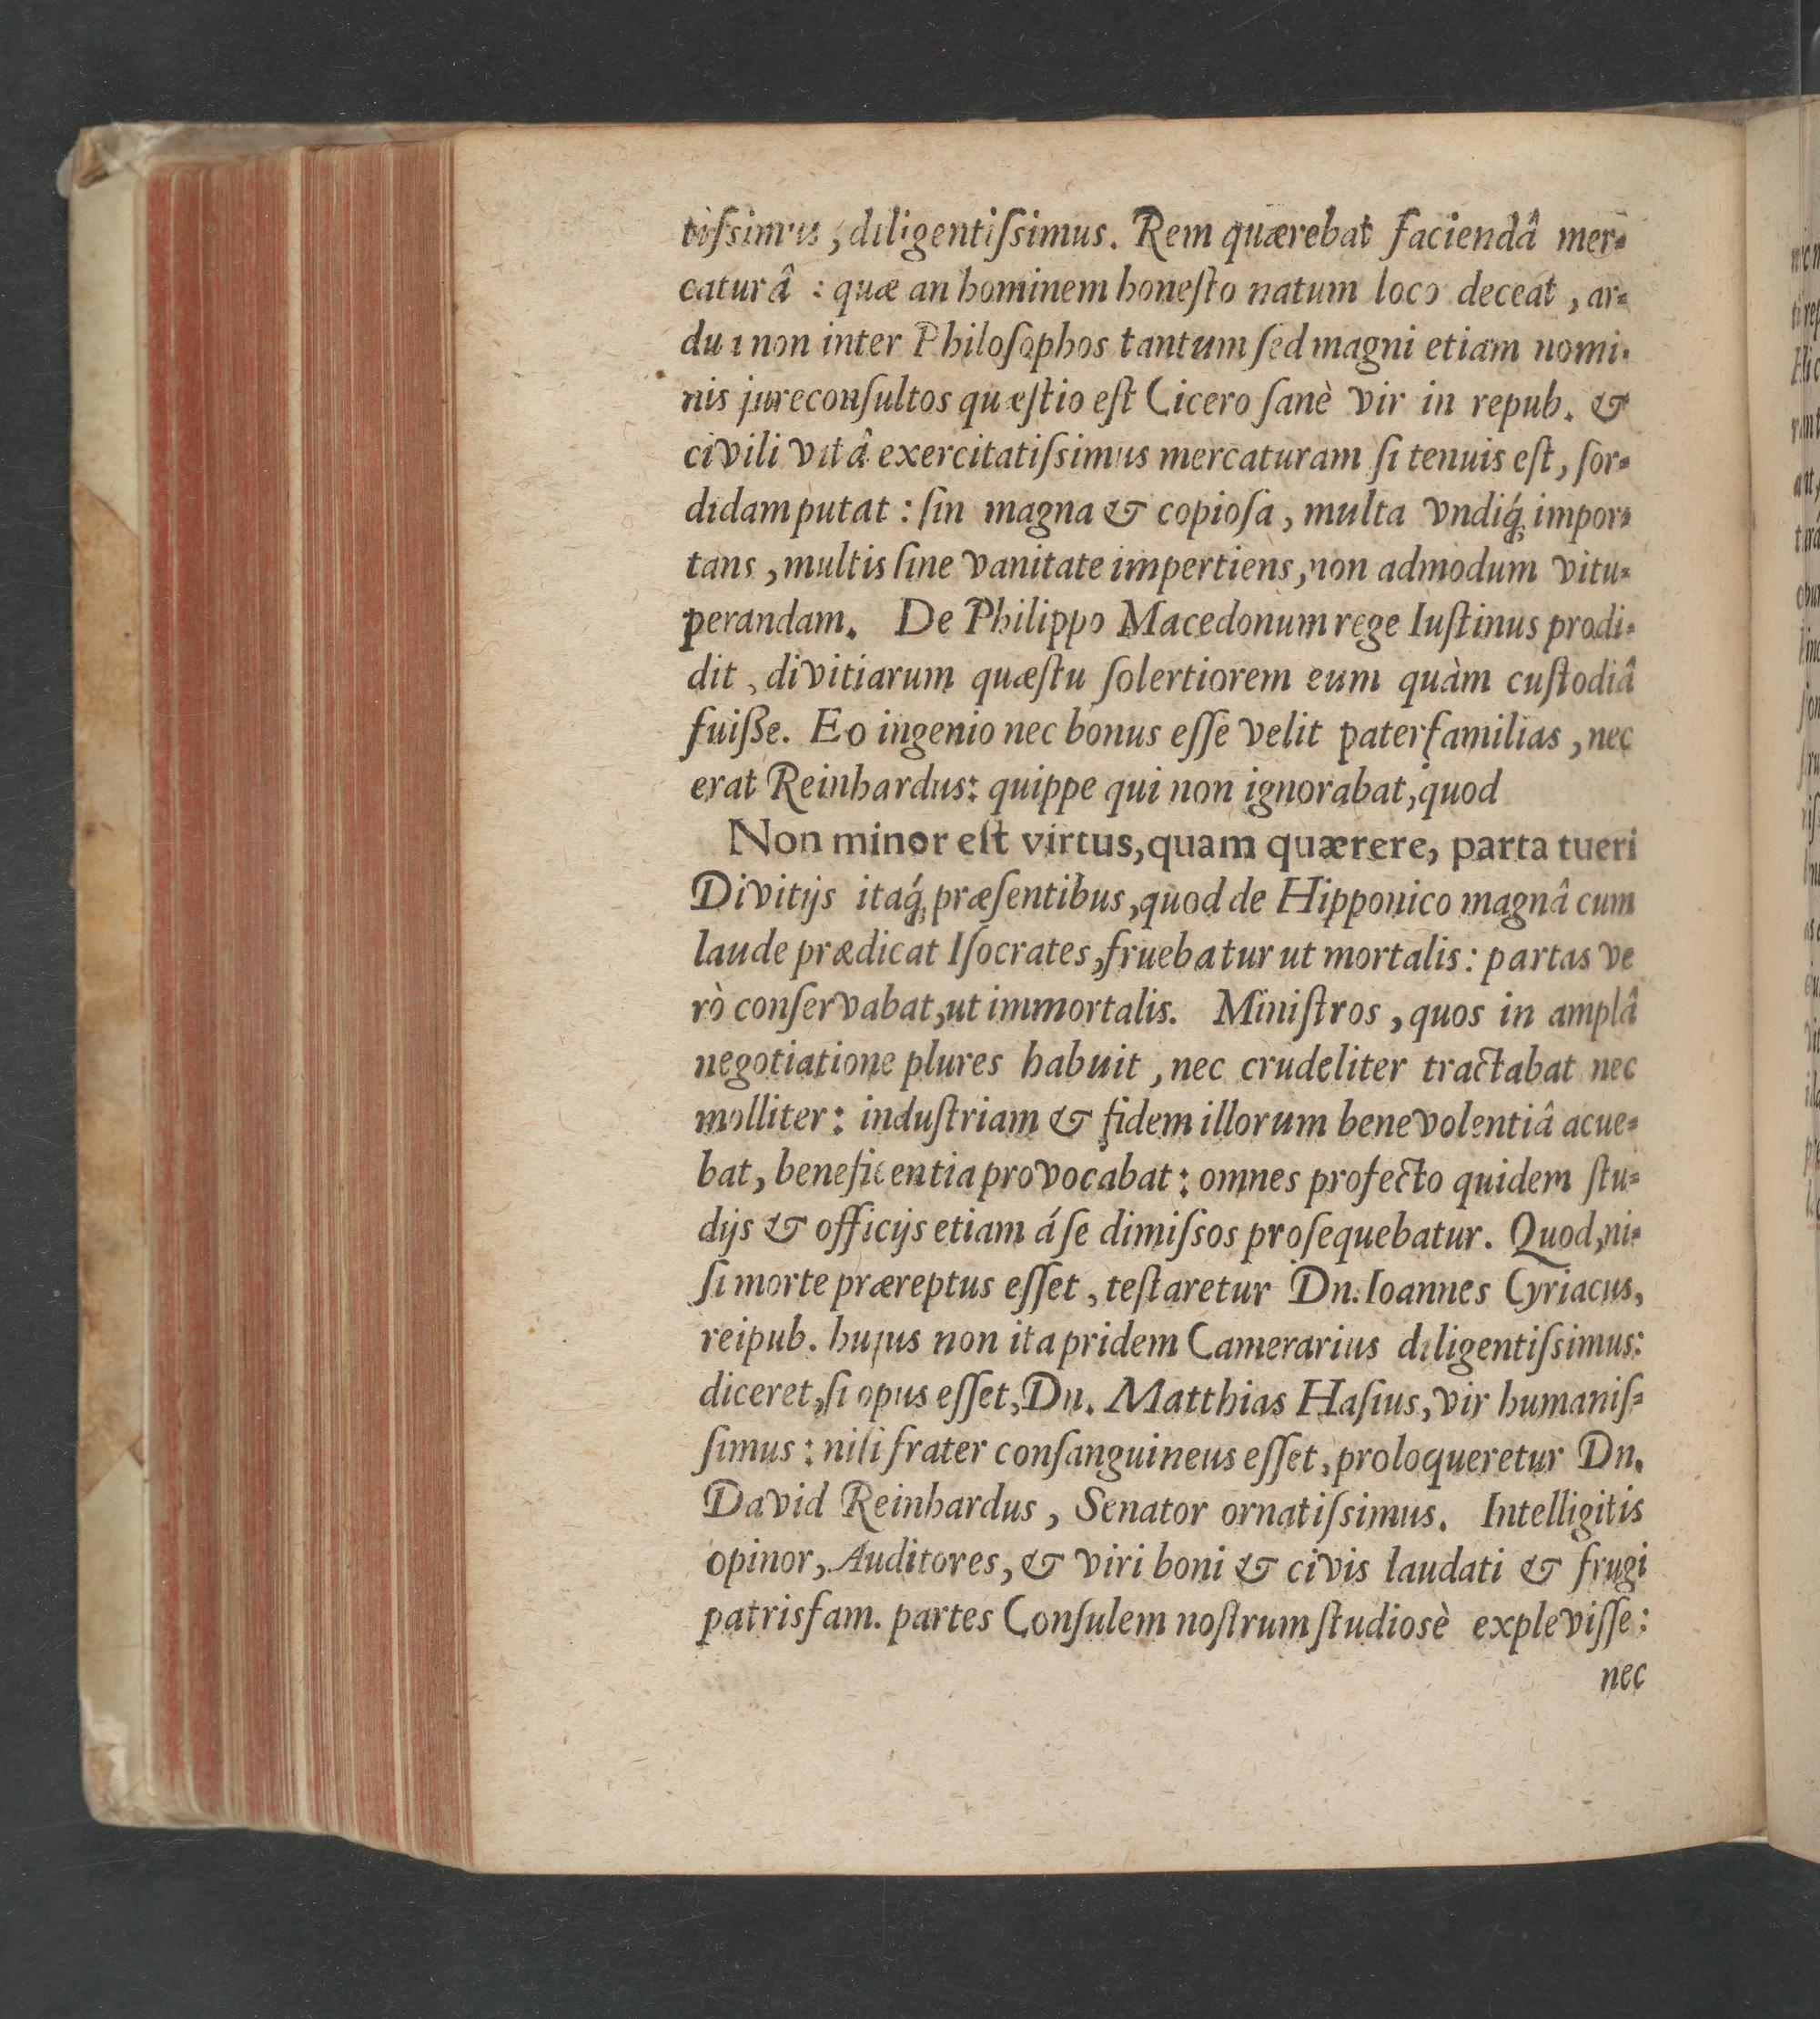 tiſsimus, diligentiſsimus. Rem quærebat faciendâ mer-
caturâ: quæ an hominem honeſto natum loco deceat, ar-
dua non inter Philoſophos tantum ſed magni etiam nomi-
nis jureconſultos quæſtio eſt Cicero ſanè vir in repub. &
civili vitâ exercitatiſsimus mercaturam ſi tenuis eſt, ſor-
didam putat: ſin magna & copioſa, multa vndiq́; impor-
tans, multis ſine vanitate impertiens, non admodum vitu-
perandam. De Philippo Macedonum rege Iuſtinus prodi-
dit, divitiarum quæſtu ſolertiorem eum quàm cuſtodiâ
fuiße. Eo ingenio nec bonus eſſe velit paterfamilias, nec
erat Reinhardus: quippe qui non ignorabat, quod
Non minor eſt virtus, quam quærere, parta tueri
Divitijs itaq́; præſentibus, quod de Hipponico magnâ cum
laude prædicat Iſocrates, fruebatur ut mortalis: partas ve
rò conſervabat, ut immortalis. Miniſtros, quos in amplâ
negotiatione plures habuit, nec crudeliter tractabat nec
molliter: induſtriam & fidem illorum benevolentiâ acue-
bat, beneficentia provocabat: omnes profecto quidem ſtu-
dijs & officijs etiam á ſe dimiſsos proſequebatur. Quod, ni-
ſi morte præreptus eſſet, teſtaretur Dn. Ioannes Cyriacus,
reipub. hujus non ita pridem Camerarius diligentiſsimus:
diceret, ſi opus eſſet, Dn. Matthias Haſius, vir humaniſ-
ſimus: niſi frater conſanguineus eſſet, proloqueretur Dn.
David Reinhardus, Senator ornatiſsimus. Intelligitis
opinor, Auditores, & viri boni & civis laudati & frugi
patrisfam. partes Conſulem noſtrum ſtudiosè expleviſſe:
nec